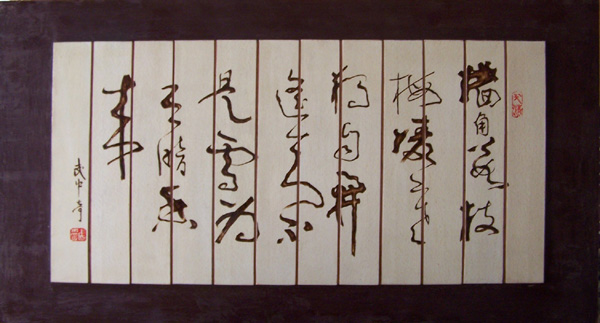 墙角数枝
梅凌寒
独自开
遥知不
是雪为
有暗香
来
武中奇